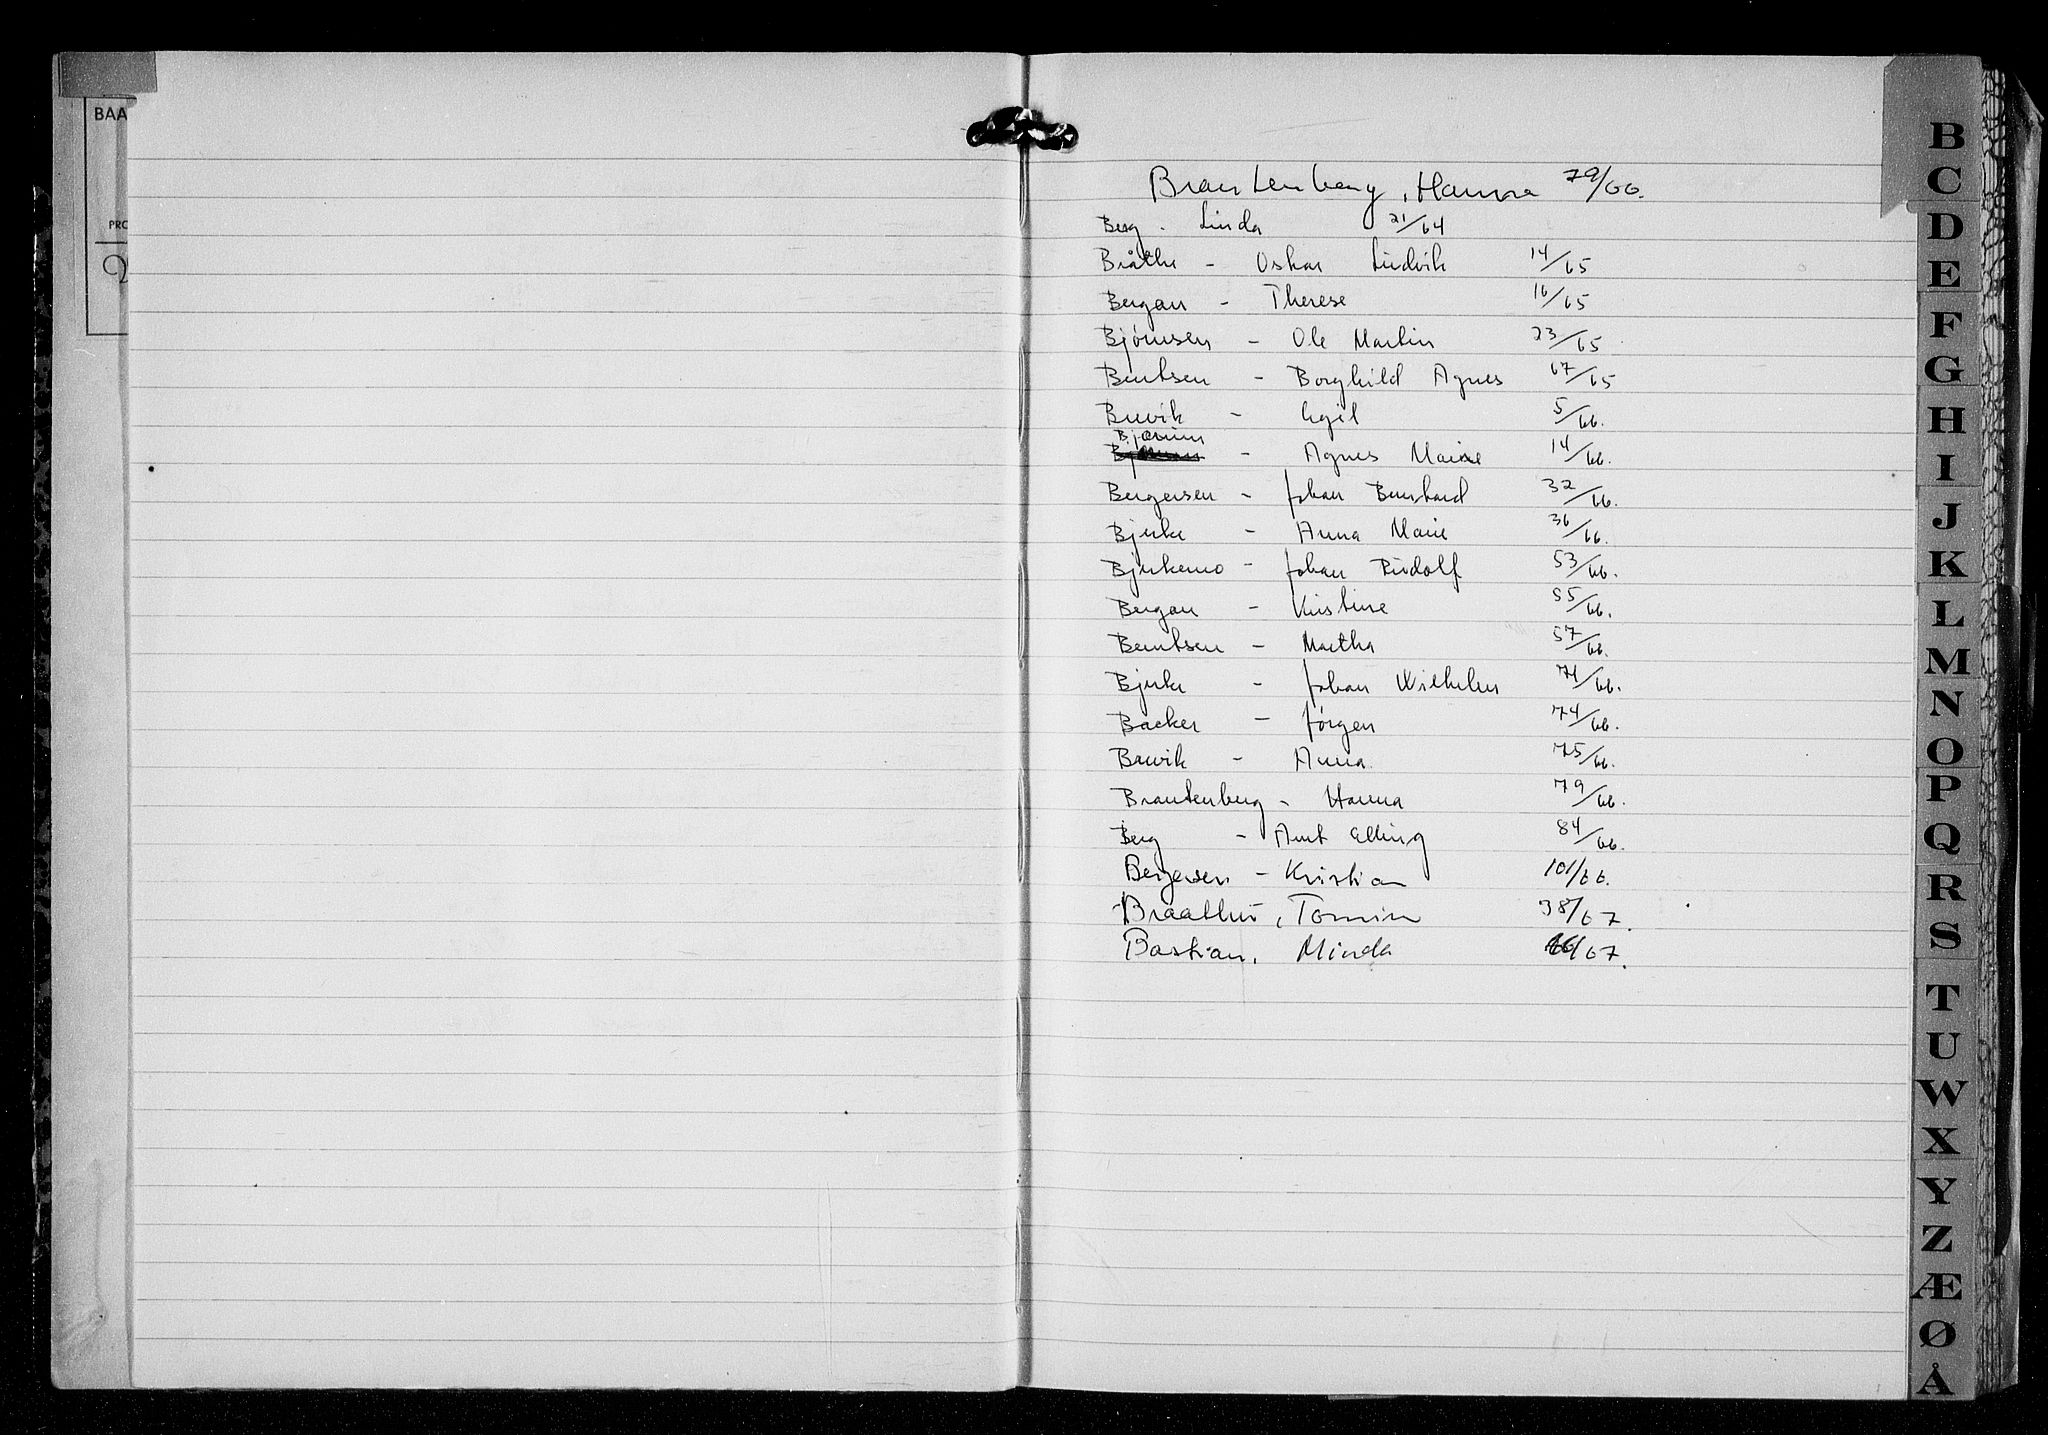 BAA
PRO
Brantenberg, Hanna 79/66.
Berg - Linda 21/64
Bråthe - Oskar Ludvik 14/65
Bergan - Therese 16/65
Bjørnsen - Ole Martin 23/65
Berntsen - Borghild Agnes 67/65
Buvik - Egil 5/66.
Bjørnn
- Agnes Marie 14/66.
Bergersen - Johan Bernhard 32/66.
Bjerke - Anna Marie 36/66.
Bjerkemo - Johan Rudolf 53/66.
Bergan - Kristine 55/66.
Berntsen - Martha 57/66.
Bjerke - Johan Wilhelm 71/66.
Backer - Jørgen 74/66.
Bruvik - Anna 75/66.
Brantenberg - Hanna 79/66.
Berg - Arnt Elling 84/66.
Bergersen - Kristian 101/66.
Braathu, Tomin 38/67.
Bastian, Minda 46/67.
B
C
D
E
F
G
H
I
J
K
L
M
N
O
P
Q
R
S
T
U
W
X
Y
Z
Æ
Ø
Å